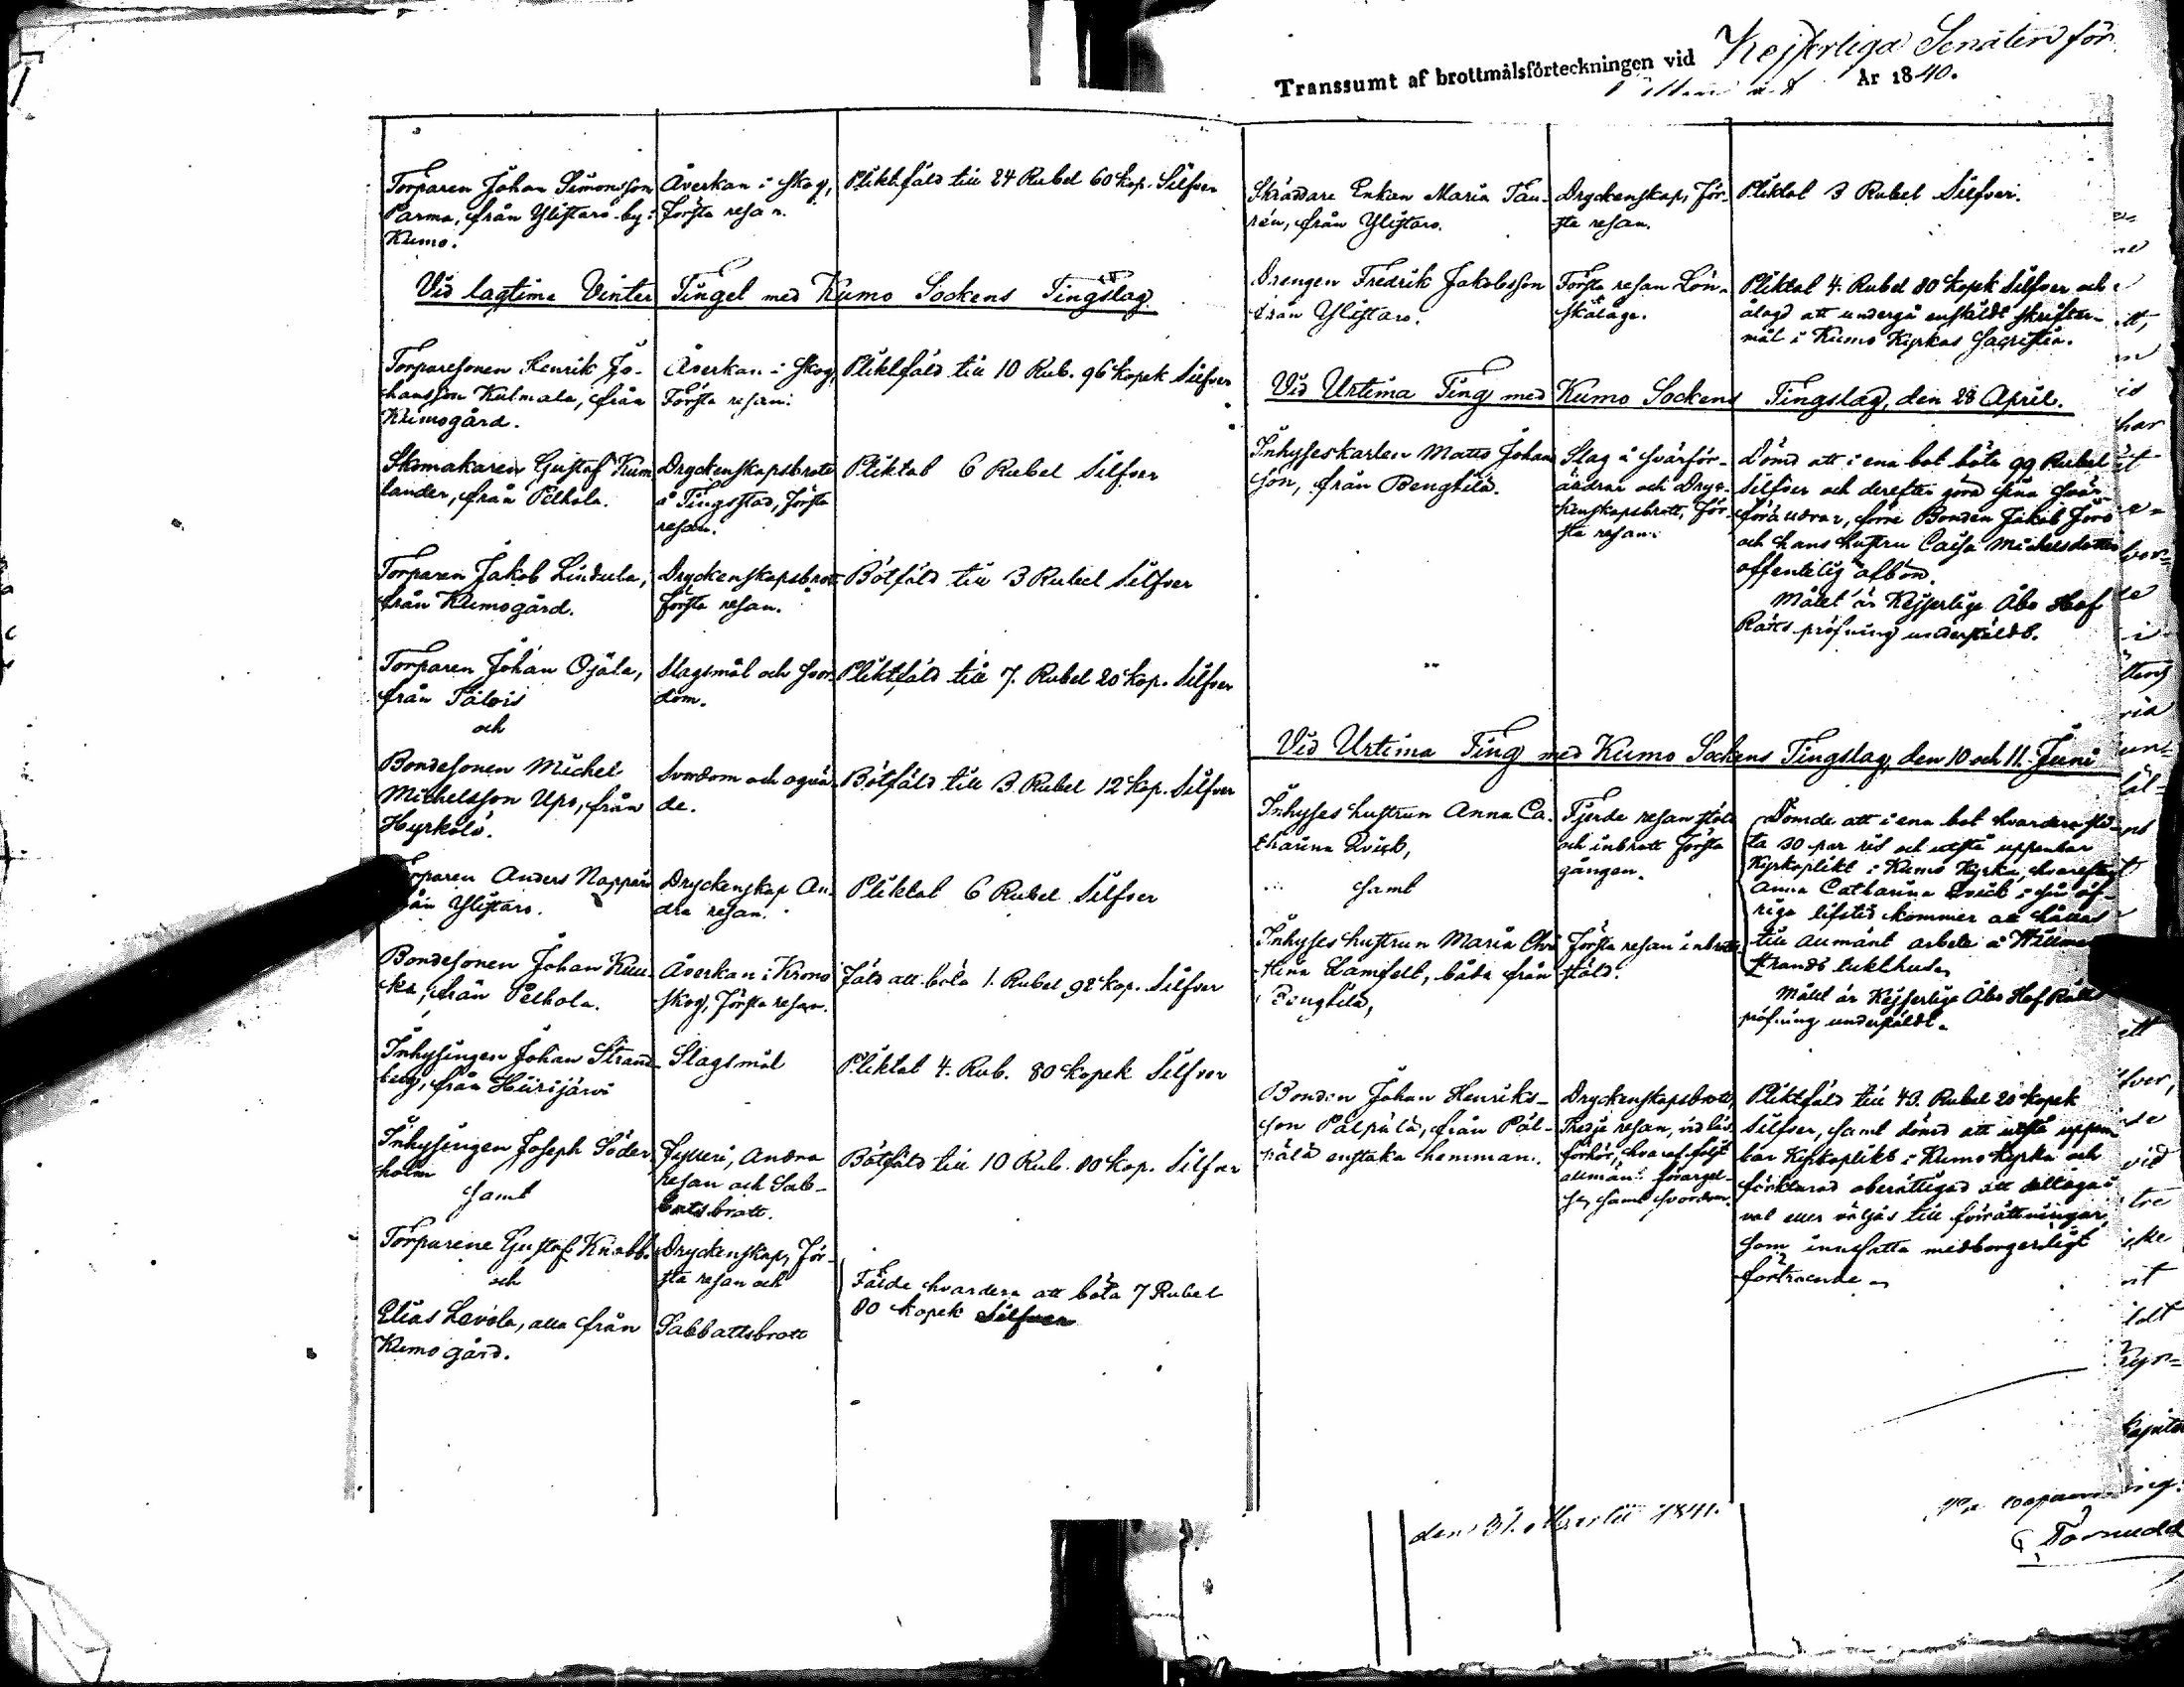 Transsumt af brottmålsförteckningen vid Kejserliga Senaten för
År 1840.
Torparen Johan Simonsson
Parma, från Ylistaro by i
Kumo.
Åverkan i skog,
Första resan.
Pliktfäld till 24 Rubel 60 kop. Silfver
Vid lagtima Vinter Tinget med Kumo Sockens Tingslag
Torparesonen Henrik Jo-
hansson Kulmala, från
Kumogård.
Åverkan i skog,
Första resan.
Pliktfäld till 10 Rub. 96 kopek Silfver
Skomakaren Gustaf Kum
lander, från Pelhola.
Dryckenskapsbrott
å Tingsstad, första
resan.
Pliktat 6 Rubel Silfver
Torparen Jakob Lindula,
från Kumogård.
Dryckenskapsbrott
första resan.
Bötfäld till 3 Rubel Silfver
Torparen Johan Ojala,
från
och
Slagsmål och svor-
dom.
Pliktfäld till 7. Rubel 20 kop. Silfver
Bondesonen Michel
Michelsson Upo, från
Hyrkölä.
Svordom och oqvä-
de.
Bötfäld till 3. Rubel 12 kop. Silfver
Torparen Anders Nappari
från Ylistaro.
Dryckenskap An-
dra resan.
Pliktat 6 Rubel Silfver
Bondesonen Johan Kuu-
ka, från Pelhola.
Åverkan i Krono
skog, Första resan.
Fäld att böta 1. Rubel 92 kop. Silfver
Inhysingen Johan Strand-
berg, från Hiirijärvi
Slagsmål
Pliktat 4. Rub. 80 kopek Silfver
Inhysingen Joseph Söder
holm
samt
Fylleri, Andra
resan och Sab-
batsbrott.
Bötfäld till 10 Rub. 80 kop. Silfver
Torparene Gustaf Knabb.
och
Elias Levola, alla från
Kumogård.
Dryckenskap, För-
sta resan och
Sabbattsbrott
Fälde hvardera att böta 7 Rubel
80 kopek Silfver
Skräddare Enkan Maria Tau-
rén, från Ylistaro.
Dryckenskap, För-
sta resan.
Pliktat 3 Rubel Silfver.
Drengen Fredrik Jakobsson
från Ylistaro.
Första resan Lön-
skaläge.
Pliktat 4. Rubel 80 kopek Silfver och
ålagd att undergå enskildt skrifter-
mål i Kumo Kyrkas Sacristia.
Vid Urtima Ting med Kumo Sockens Tingslag, den 28 April.
Inhysseskarlen Matts Johans
son, från Bengtilä.
Slag å svärför-
äldrar och Dryc-
kenskapsbrott, För-
sta resan.
Dömd att i ena bot böta 99 Rubel
Silfver och derefter göra sina svär-
föräldrar, förre Bonden Jakob
och hans hustru Caisa Michelsdotter
offentelig afbön.
Målet är Kejserlige Åbo Hof
Rätts pröfning underställdt.
Vid Urtima Ting med Kumo Sockens Tingslag, den 10 och 11. Juni
Inhyses hustrun Anna Ca-
tharina Qvick,
samt
Fjerde resan stöld
och inbrott första
gången.
Dömde att i ena bot hvardera sli-
ta 30 par ris och utstå uppenbar
Kyrkoplikt i Kumo Kyrka, hvarefter
Anna Catharina Qvick i sin öf-
riga lifstid kommer att hållas
till allmänt arbete å Willman-
strands tukthus.
Inhyses hustrun Maria Chri
stina Lamfelt, båda från
Bengtilä,
Första resan inbrotts
stöld.
Målet är Kejserlige Åbo Hof Rätts
pröfning underställdt.
Bonden Johan Henriks-
son Pälpälä, från Päl-
pälä enstaka hemman.
Dryckenskapsbrott,
Tredje resan, vid läs-
förhör, hvaraf följt
allmän förargel-
se, samt svordom.
Pliktfäld till 43. Rubel 20 kopek
Silfver, samt dömd att utstå uppen
bar Kyrkoplikt i Kumo Kyrka och
förklarad oberättigad att deltaga i
val eller väljas till förrättningar,
som innefatta medborgerligt
förtroende.
den 31. Martii 1841.